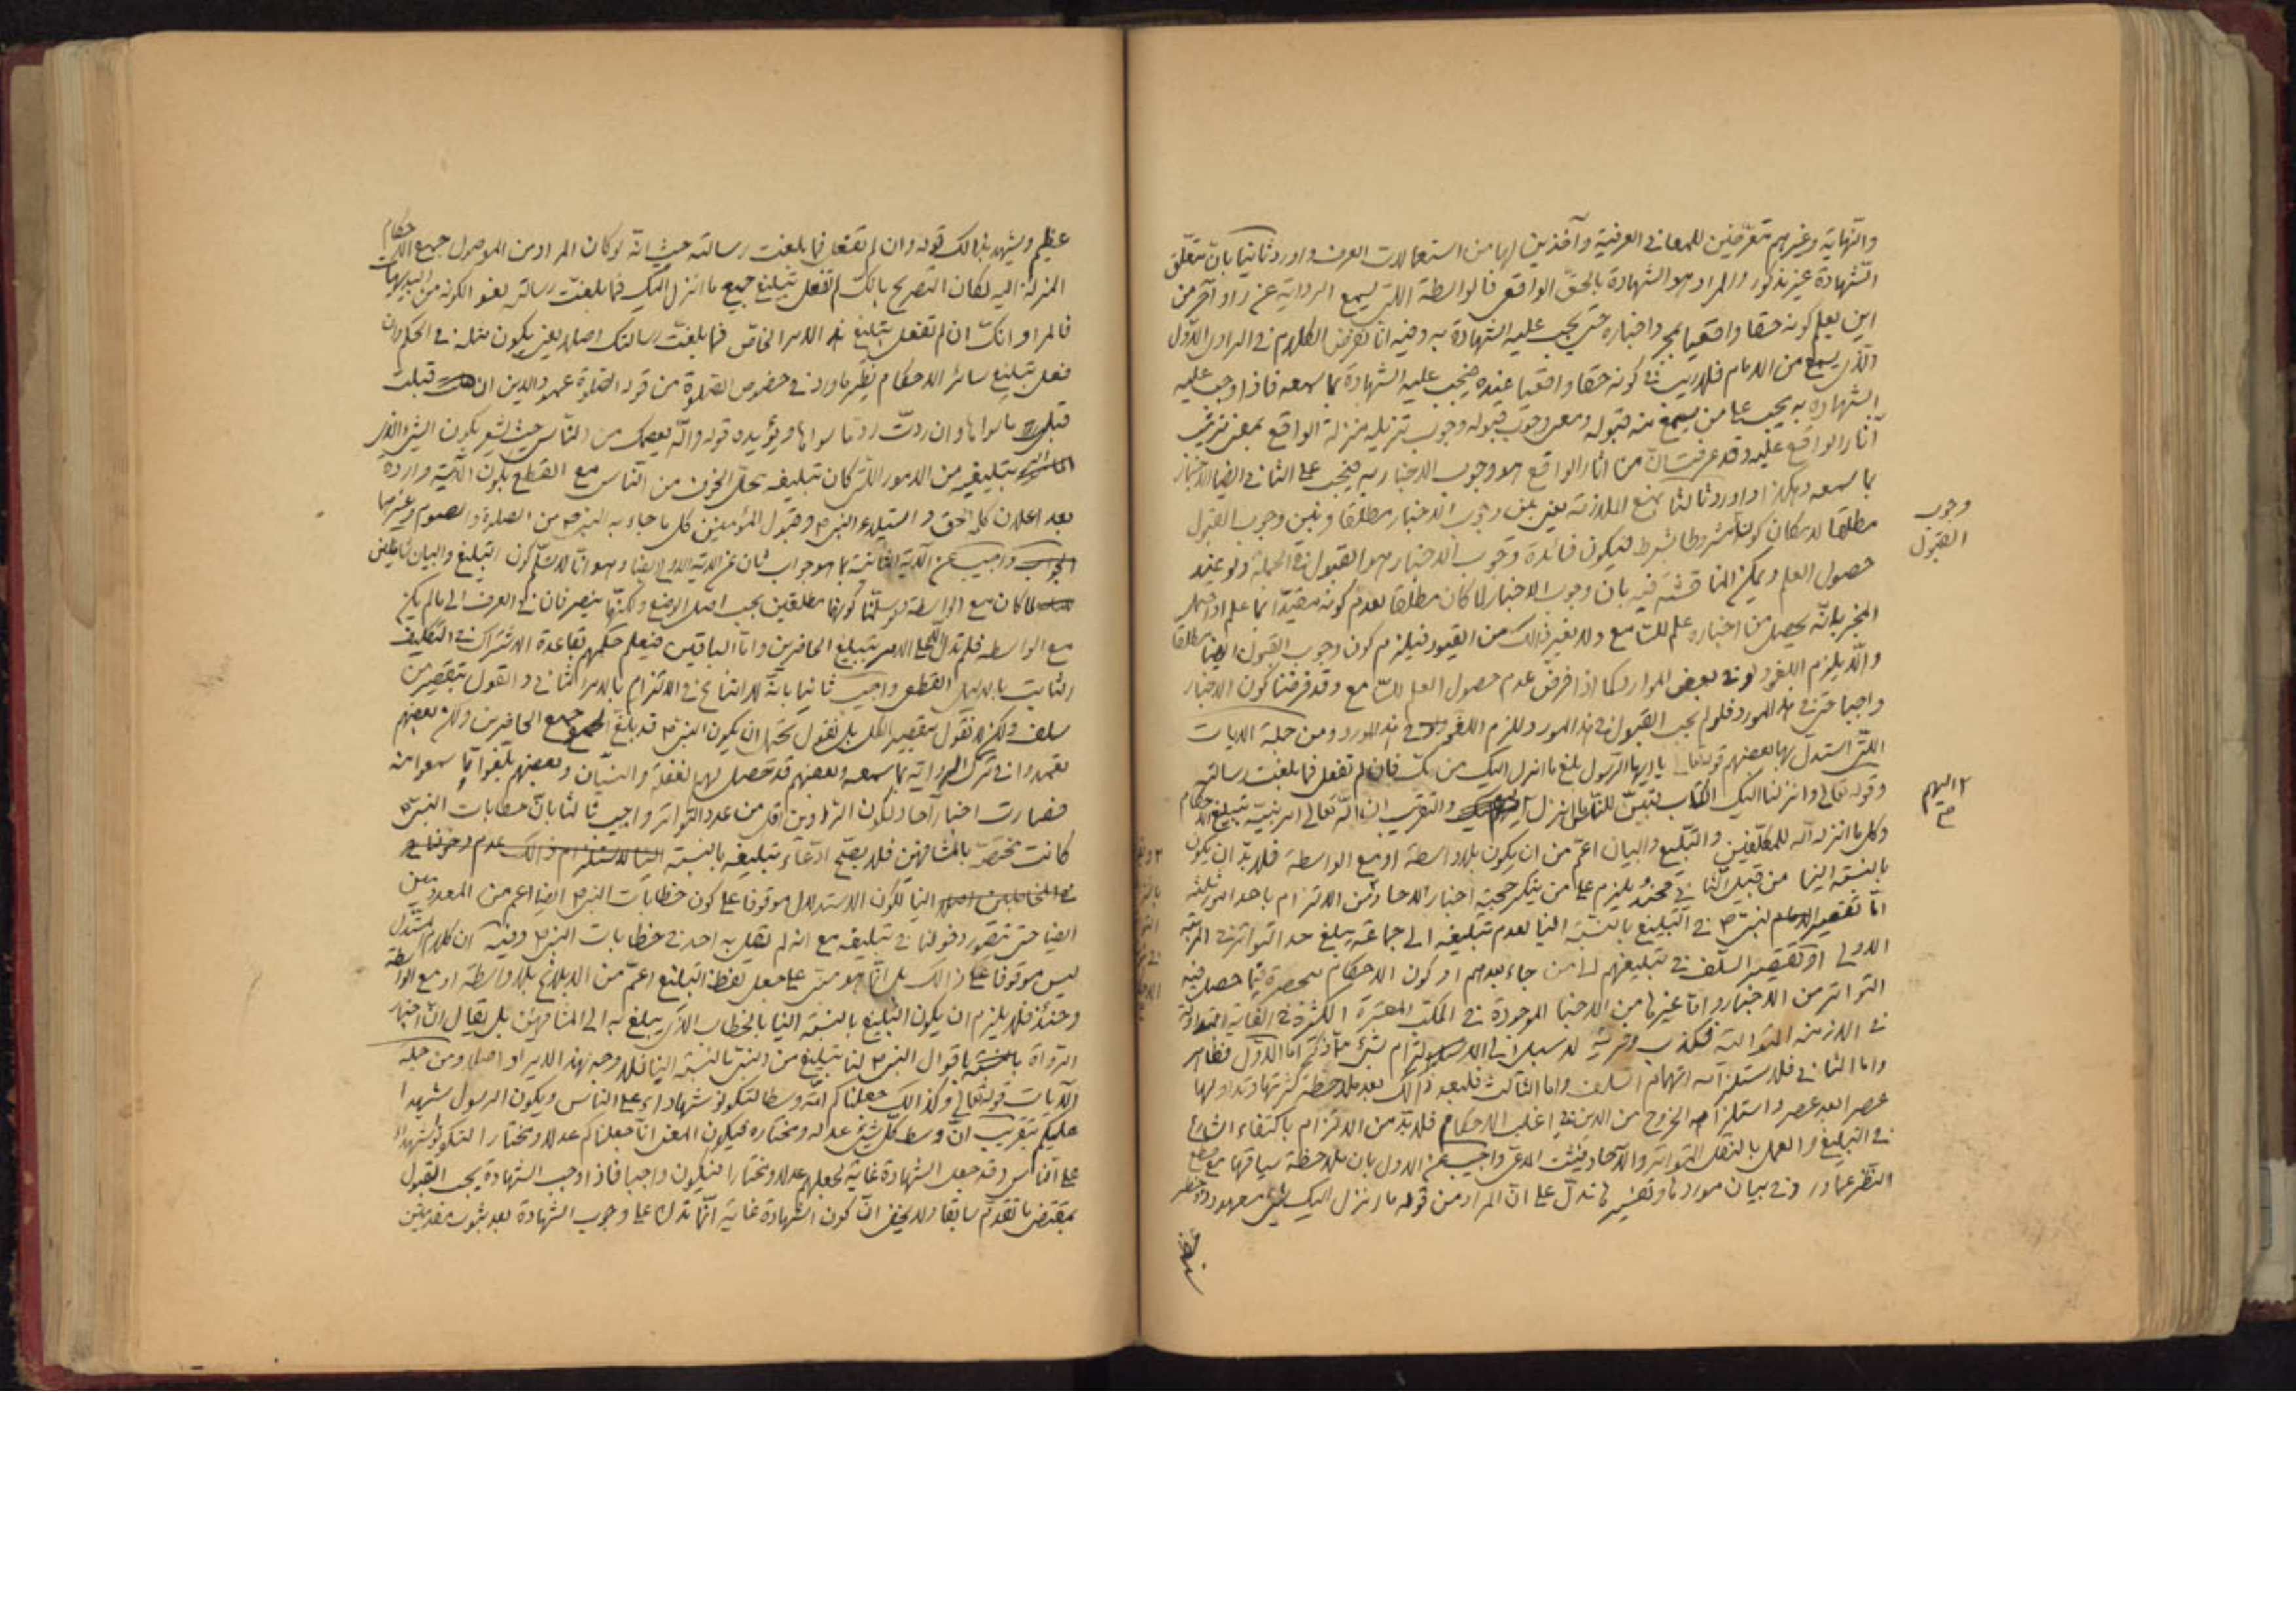 والنهاية وغيرهم متعرّضين للمعاني العرفية وآخذين لها من استعمالات العرف واورد ثانيا بانّ متعلّق
الشهادة غير مذكور والمراد هو الشهادة بالحقّ الواقعى فالواسطة اللتى يسمع الرواية عن راو آخر من
اين يعلم كونه حقا واقعيا بمجرد اخباره حتى يجب عليه الشهادة به وفيه انا نفرض الكلام في الراوى الاوّل
الّذى يسمع من الامام فلاريب في كونه حقا واقعيا عنده فيجب عليه الشهادة بما سمعه فاذا وجب عليه
الشهادة به يجب على من يسمع منه قبوله ومعنى وجوب قبوله وجوب تنزيله منزلة الواقع بمعنى ترتيب
آثار الواقع عليه وقد عرفت انّ من اثار الواقع هو وجوب الاخبار به فيجب على الثانى ايضا الاخبار
بما سمعه وهكذا واورد ثالثا بمنع الملازمة يعنى بين وجوب الاخبار مطلقا وبين وجوب القبول
وجوب القبول
مطلقا لامكان كونه مشروطا بشرط فيكون فائدة وجوب الاخبار هو القبول في الجملة ولو عند
حصول العلم ويمكن المناقشة فيه بان وجوب الاخبار لما كان مطلقا لعدم كونه مقيدا بما علم او احتمل
المخبر بانّه يحصل من اخباره علم للسامع ولا بغير ذالك من القيود فيلزم كون وجوب القبول ايضا مطلقا
والّا يلزم اللغو ولو في بعض الموارد كما اذا فرض عدم حصول العلم للسامع وقد فرضنا كون الاخبار
واجبا حتى في هذا المورد فلو لم يجب القبول في هذا المورد للزم اللغو في هذا المورد ومن جملة الايات
اللتى استدل بها بعضهم قوله تعالى يا ايها الرسول بلغ ما انزل اليك من ربك فان لم تفعل فما بلغت رسالته
وقوله تعالى وانزلنا اليك الكتاب لتبيّن للناس ما نزل اليهم والتقريب ان الله تعالى امر نبيّه بتبليغ الاحكام
اليهم صح
وكل ما انزله الله للمكلّفين والتبليغ والبيان اعمّ من ان يكون بلا واسطة او مع الواسطة فلابدّ ان يكون
بالنسبة الينا من قبيل الثانى فحينئذ يلزم على من ينكر حجية اخبار الاحاد من الالتزام باحد امور ثلثة
امّا تقصير النبى ص في التبليغ بالنسبة الينا لعدم تبليغه الى جماعة يبلغ حد التواتر في المرتبة
الاولى او تقصير السلف في تبليغهم الى من جاء بعدهم او كون الاحكام منحصرة فيما حصل فيه
التواتر من الاخبار وامّا غيرها من الاخبار الموجودة في الكتب المعتبرة الكثيرة في الغاية المتداولة
في الازمنة المتوالية فكذب وفرية لا سبيل الى الالتزام بشىء مما ذكر امّا الاوّل فظاهر
واما الثانى فلاستلزامه اتهام السلف واما الثالث فلبعد ذالك بعد ملاحظة كثرتها وتداولها
عصرا بعد عصر واستلزامه الخروج من الدين في اغلب الاحكام فلابدّ من الالتزام باكتفاء الشارع
في التبليغ والعمل بالنقل المتواتر والآحاد فيثبت المدعى واجيب عن الاول بان ملاحظة سياقها مع قطع
النظر عما ورد في بيان موردها وتفسيرها تدلّ على انّ المراد من قوله ما انزل اليك شىء معهود ذو خطر
عظيم
عظيم ويشهد بذالك قوله وان لم تفعل فما بلغت رسالته حيث انّه لو كان المراد من الموصول جميع الاحكام
المنزلة اليه لكان التصريح بانك لم تفعل تبليغ جميع ما انزل اليك فما بلغت رسالته لغو الكونه من البديهيات
فالمراد انك ان لم تفعل تبليغ هذا الامر الخاصّ فما بلغت رسالتك اصلا يعنى يكون مثله في الحكم لان
فعل تبليغ سائر الاحكام نظير ما ورد في خصوص الصلوة من قوله الصلوة عمود الدين ان قبلت
قبل ما سواها وان ردّت ردّ ما سواها ويؤيده قوله والله يعصمك من الناس حيث يشعر بكون الشىء الذى
تبليغه من الامور اللتى كان تبليغه محلّ الخوف من الناس مع القطع بكون الآية واردة
بعد اعلان كل الحق واستيلاء النبى ص وقبول المؤمنين كل ما جاء به النبى ص من الصلوة والصوم وغيرهما
واجيب عن الآية الثانية بما هو جواب ثان عن الاية الاولى ايضا وهو انّا لا نسلّم كون التبليغ والبيان شاملين
لما كان مع الواسطة ولو سلّمنا كونهما مطلقين بحسب اصل الوضع ولكنّهما ينصرفان في العرف الى ما لم يكن
مع الواسطه فلم تدل الّا على الامر بتبليغ الحاضرين وامّا الباقين فيعلم حكمهم بقاعدة الاشتراك في التكليف
الثابت بالدليل القطعى واجيب ثانيا بانّه لا امتناع في الالتزام بالامر الثانى والقول بتقصير من
سلف ولكن لا نقول بتقصير الكل بل نقول يحتمل ان يكون النبى ص قد بلغ جميع الحاضرين ولكن بعضهم
تعمدوا في ترك الرواية بما سمعه وبعضهم قد حصل لهم الغفلة والنسيان وبعضهم بلّغوا ما سمعوا منه
فصارت اخبار آحاد لكون الراوين اقل من عدد التواتر واجيب ثالثا بانّ خطابات النبى ص
كانت مختصّة بالمشافهين فلا يصحّ ادّعاء تبليغه بالنسبة
الينا لكون الاستدلال موقوفا على كون خطابات النبى ص ايضا اعم من المعدومين
ايضا حتى يتصوّر دخولنا في تبليغه مع انه لم يقل به احد في خطابات النبى ص وفيه ان كلام المستدل
ليس موقوفا على ذالك بل انّما هو مبنى على جعل لفظ التبليغ اعمّ من الابلاغ بلا واسطة او مع الواسطة
وحينئذ فلا يلزم ان يكون التبليغ بالنسبة الينا بالخطاب الذى يبلغ به الى المشافهين بل يقال انّ اخبار
الرواة باقوال النبى ص لنا تبليغ من النبى بالنسبة الينا فلا وجه لهذا الايراد اصلا ومن جملة
الآيات قوله تعالى وكذالك جعلناكم امّة وسطا لتكونوا شهداء على الناس ويكون الرسول شهيدا
عليكم بتقريب انّ وسط كلّ شىء عدله ومختاره فيكون المعنى انا جعلناكم عدلا ومختارا لتكونوا شهداء
على الناس وقد جعل الشهادة غاية لجعلهم عدلا ومختارا فيكون واجبا فاذا وجب الشهادة يجب القبول
بمقتضى ما تقدّم سابقا ولا يخفى انّ كون الشهادة غاية انّما تدل على وجوب الشهادة بعد ثبوت مقدمتين